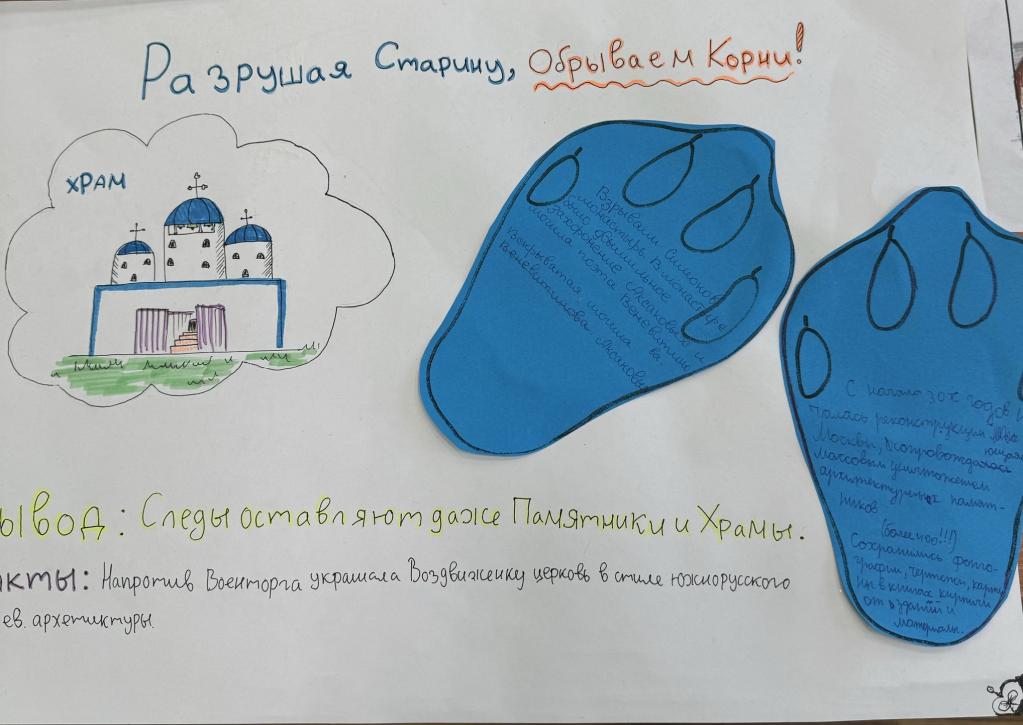 Разрушая Старину, Обрываем Корни!
ХРАМ
Взрывали Симонов
монастырь. В монастыре
было фамильное
захоронение Аксаковых и
могила поэта Веневитинова.
Вскрывая могила
Веневитинова Аксаковы
С начала 30х годов н
чалась реконструкция
Москвы, сопровождалась
массовым уничтожетем
архитектурных памят-
ников
(более 400!!!)
Сохранились фото-
графии, чертежи, карти
ны в книгах кирпичи
от зданий и
материалы.
ывод: Следы оставляют даже Памятники и Храмы.
акты: Напротив Военторга украшала Воздвиженку церковь в стиле южнорусского
ев. архетиктуры.